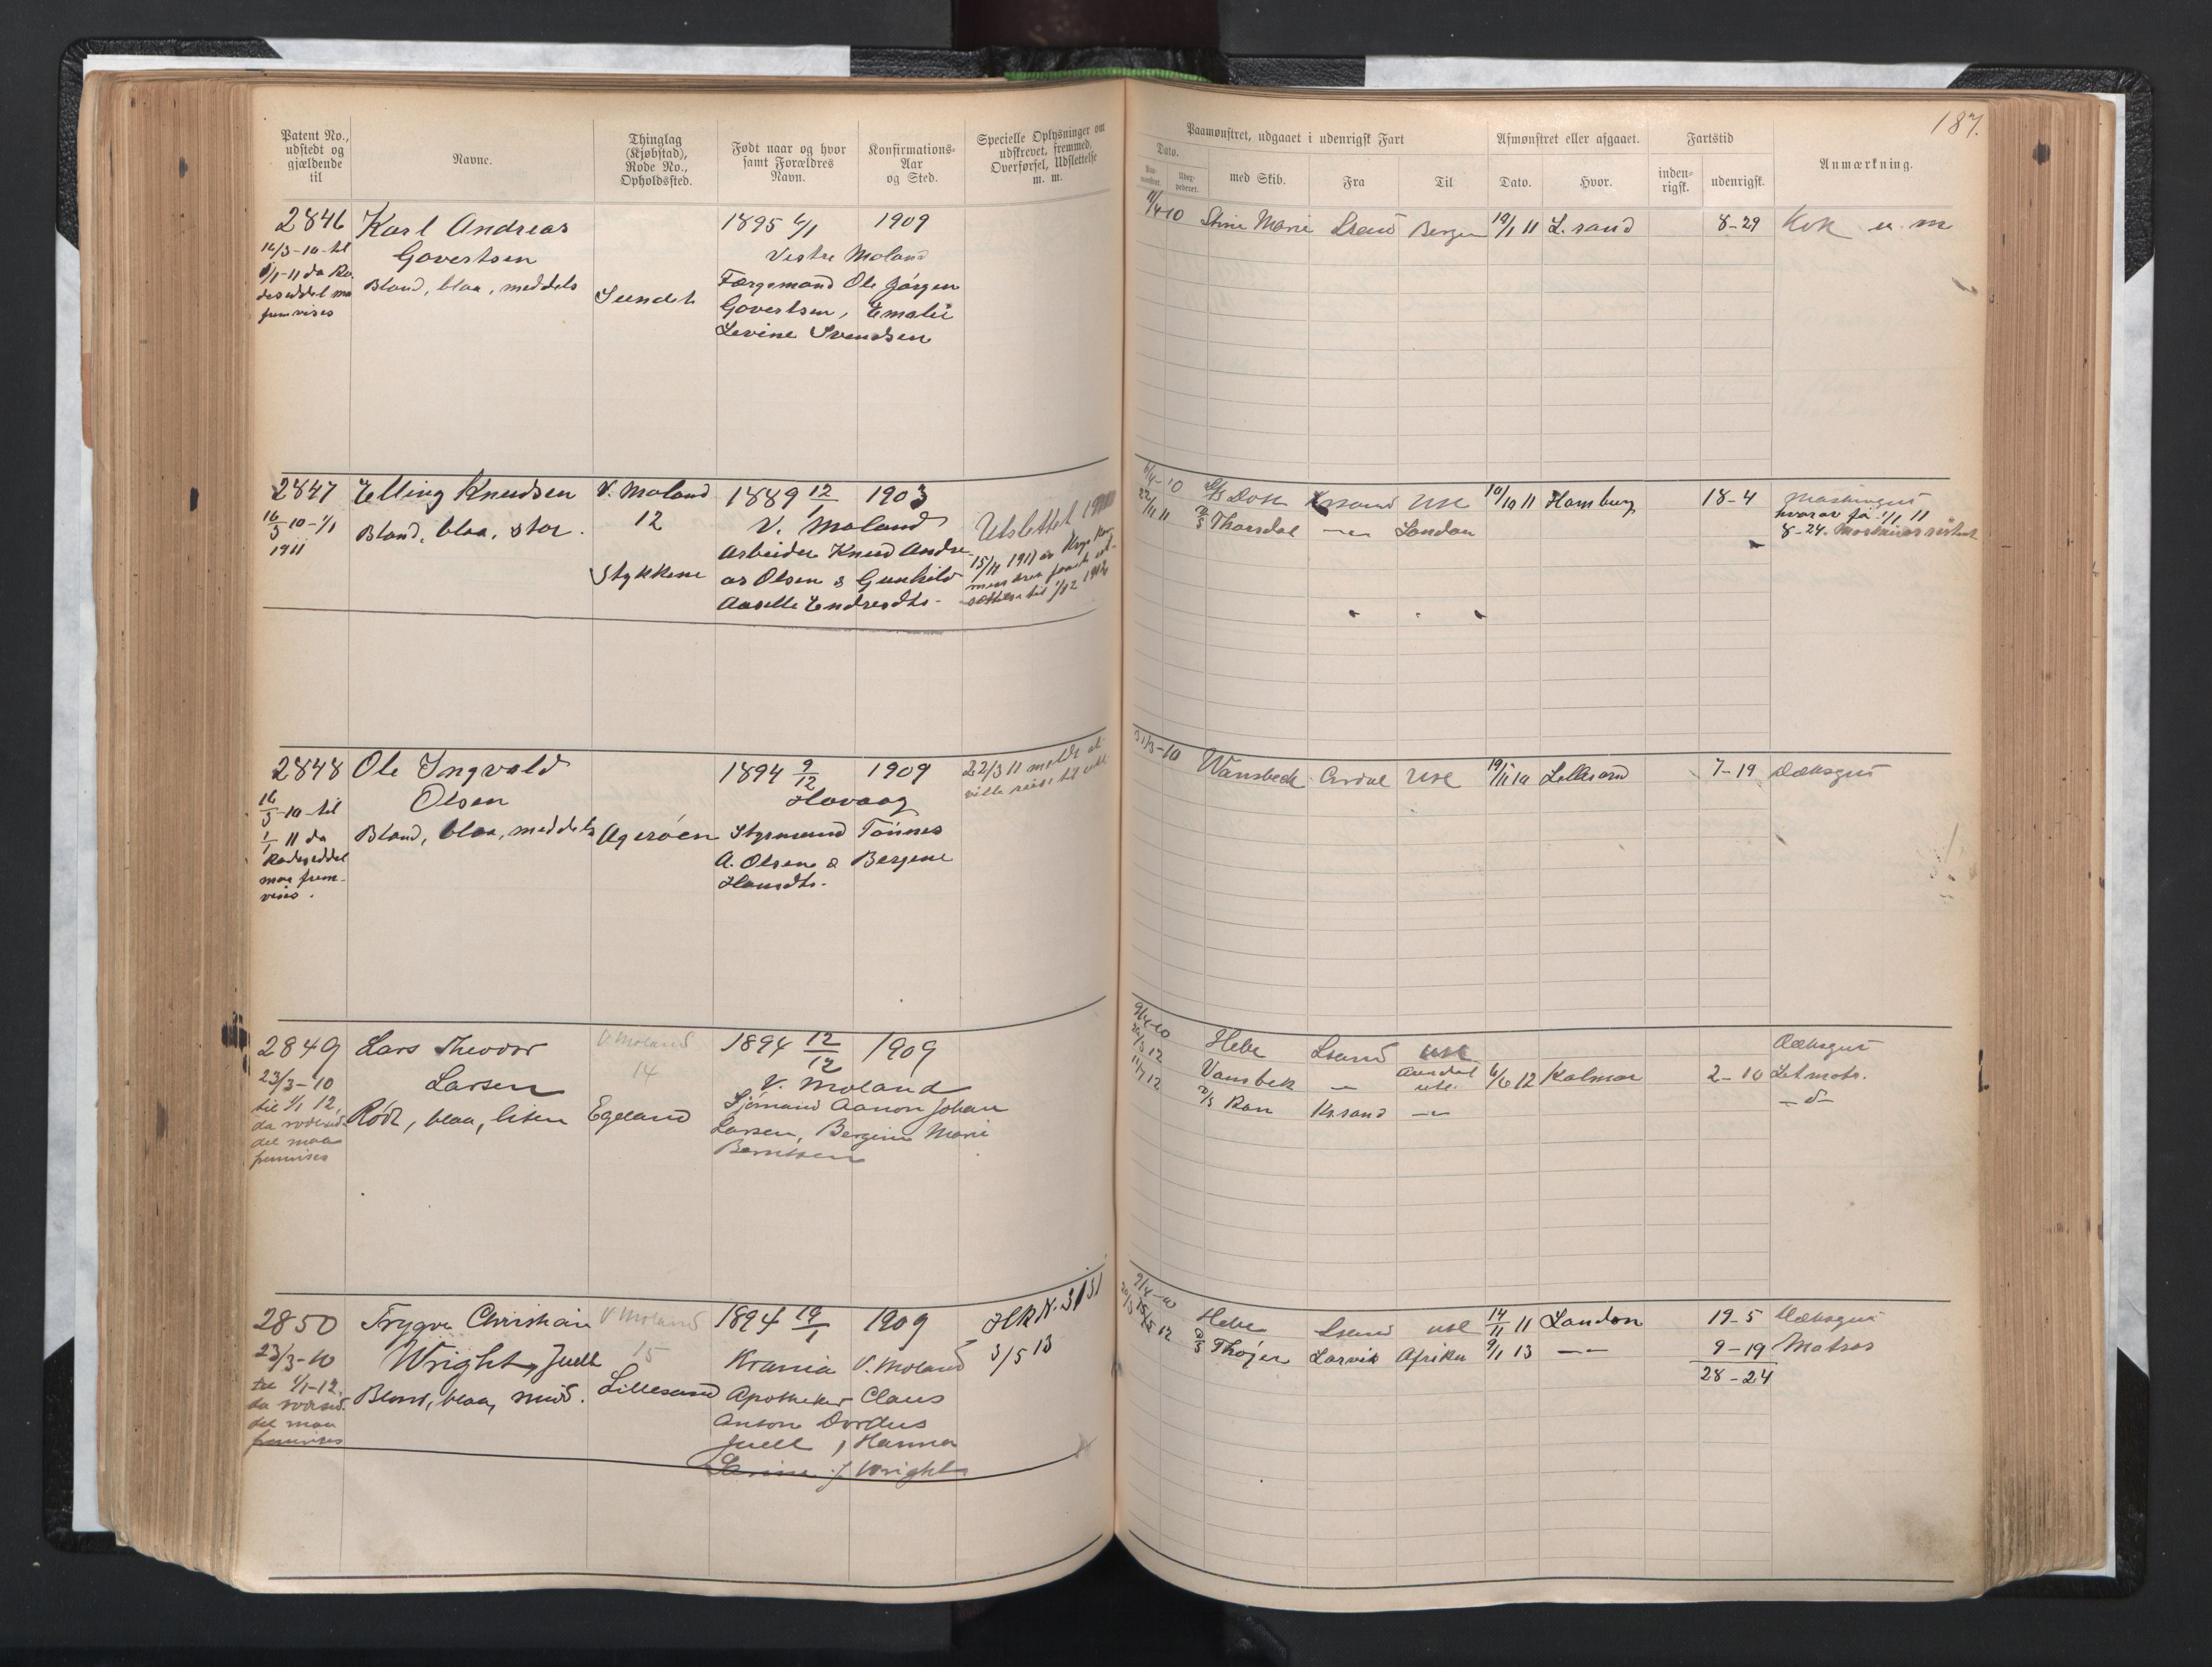 187.
Patent No., udstedt og gjældende til
Navne.
Thinglag (Kjøbstad), Rode No., Opholdssted.
Født naar og hvor samt Forældres Navn.
Konfirmations-Aar og Sted.
Specielle Oplysninger om udskrevet, fremmed, Overførsel, Udslettelse m. m.
Paamønstret, udgaaet i udenrigsk Fart
Dato.
med Skib.
Fra
Til
Afmønstret eller afgaaet.
Dato.
Hvor.
Fartstid
inden-rigsk.
udenrigsk.
Anmærkning.
2846 Karl Andreas 1895 6/1 1909
16/3-10 til Govertsen Vestre Moland
1/1-11 da Ro- Blond, blaa, meddels Sundet Færgemand Ole Jørgen
deseddel maa Govertsen, Emalie
fremvises Levine Svendsen
11/4 10 Stine Marie Lsand Bergen 19/1 11 L.sand 8-29 Kok u. m
2847 Elling Knudsen V. Moland 1889 12/1 1903
16/3-10-1/1 Blond, blaa, stor. 12 V. Moland Utslettet
1911 Arbeider Knud Andre-
Stykkene as Olsen & Gunhild
Aaselle Endresdtr.
15/11 1911
6/4-10 D/S Kssand Utl 10/10 11 Hamburg 18-4
22/11 11 D/S Thorsdal -"- London hvorav fø 1/1 11
8-24.
2848 Ole Ingvald 1894 9/12 1909 22/3 11 meldt at
16/3-10 til Olsen Høvaag
1/1 11 da Blond, blaa, meddels Agerøen Styrmand Tønnes
Rodeseddel A. Olsen & Bergine
maa frem- Hansdtr.
vises.
31/3-10 Wansbeck Utl 19/11 10 Lillesand 7-19 Dæksgut
2849 Lars Theodor V. Moland 1894 12/12 1909
23/3-10 Larsen 14 V. Moland
til 1/1 12, Rødt, blaa, liten Egeland Sjømand Aanon Johan
da rodesed- Larsen, Bergine Marie
del maa Berntsen
fremvises
9/4-10 Hebe Lsand Utl Dæksgut
Vansbek - Arendal utl. 6/6 12 Kalmar 2-10 Letmatr.
11/7 12 D/S Ran Kr.sand -"- -d-
2850 Trygve Christian V Moland 1894 19/1 1909 HR N. 3131
23/3-10 Wright Juell 15 Krania V. Moland 3/5 13
til 1/1-12, Blond, blaa, mid. Lillesand Apotheker Claus
da rodesed- Anton Dordius
del maa Juell, Hanna
fremvises Larine f. Wright
9/4-10 Hebe Lsand utl 14/11 11 London 19-5 Dæksgut
D/S Thøger Larvik Afrika 9/1 13 -"- 9-19 Matros
28-24